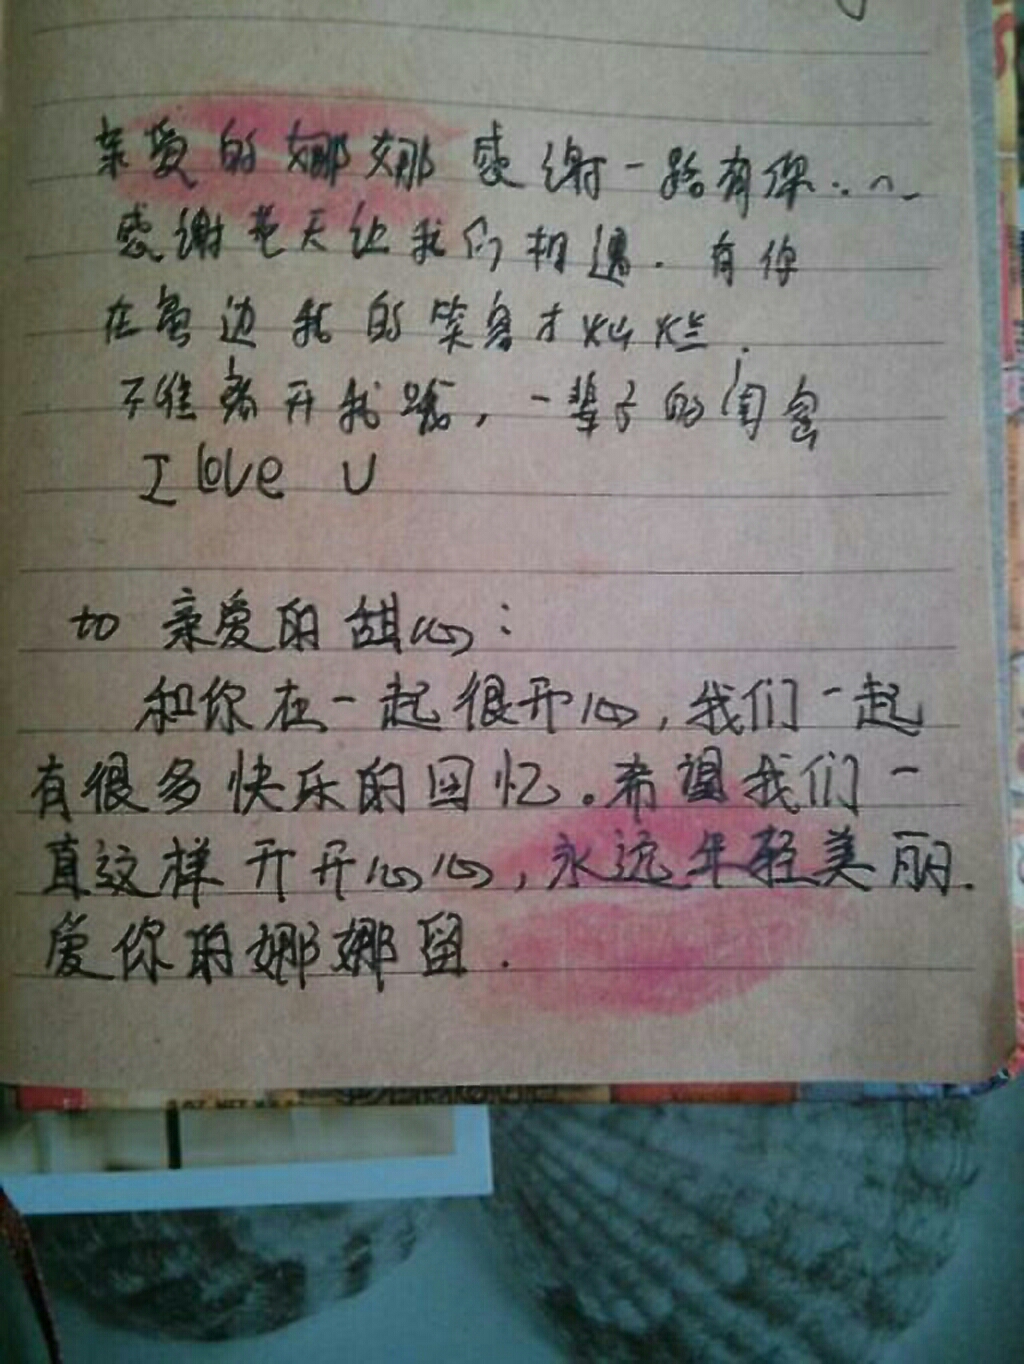 亲爱的娜娜 感谢一路有你..~
感谢老天让我们相遇. 有你
在身边我的笑容才灿烂.
不准离开我哦, 一辈子的闺蜜
I love U
to 亲爱的甜心:
和你在一起很开心,我们一起
有很多快乐的回忆.希望我们一
直这样开开心心,永远年轻美丽.
爱你的娜娜留.